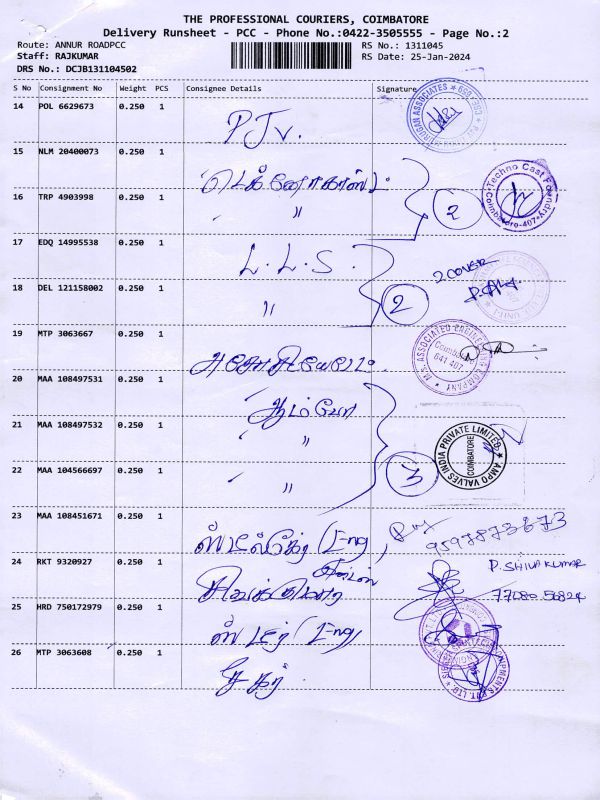 THE PROFESSIONAL COURIERS, COIMBATORE
Delivery Runsheet - PCC - Phone No.:0422-3505555 - Page No.:2
Route: ANNUR ROADPCC
RS No.: 1311045
Staff: RAJKUMAR
RS Date: 25-Jan-2024
DRS No.: DCJB131104502
S No Consignment No Weight PCS Consignee Details Signature
14 POL 6629673 0.250 1
15 NLM 20400073 0.250 1
16 TRP 4903998 0.250 1 〃 2
Techno Cast Foundry
Coimbatore-407
17 EDQ 14995538 0.250 1 L. L. S.
2 COVER
18 DEL 121158002 0.250 1 〃 2
19 MTP 3063667 0.250 1
M.S. ASSOCIATED ENGINEERING COMPANY
Coimbatore
641 407
20 MAA 108497531 0.250 1
21 MAA 108497532 0.250 1 〃
AMPO VALVES INDIA PRIVATE LIMITED
COIMBATORE
22 MAA 104566697 0.250 1 〃 3
23 MAA 108451671 0.250 1
9597873673
24 RKT 9320927 0.250 1
P. SHIVA KUMAR
77080 56824
25 HRD 750172979 0.250 1
26 MTP 3063608 0.250 1 சேகர்